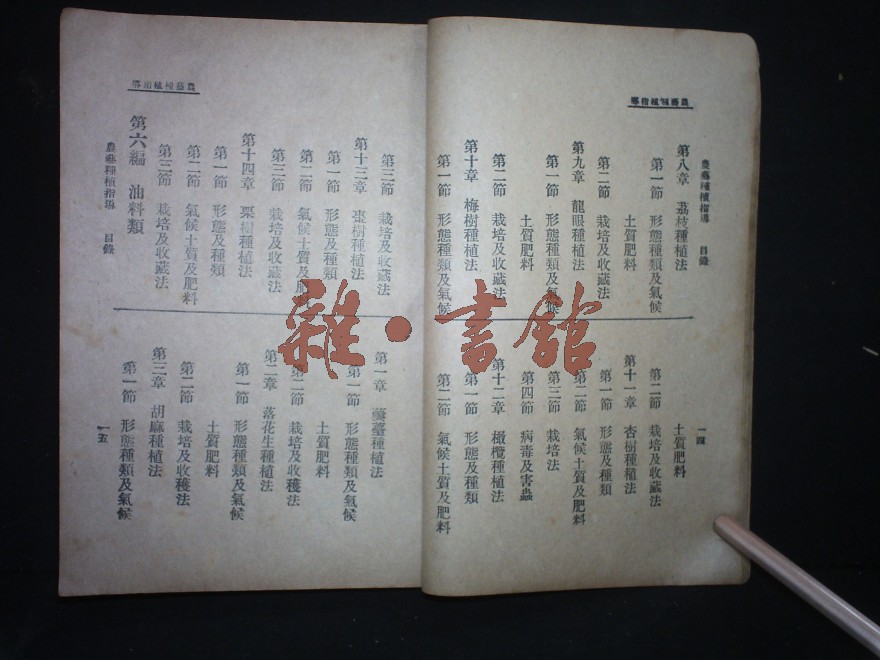 農藝種植指導
農藝種植指導 目錄
第八章 荔枝種植法
第一節 形態種類及氣候
土質肥料
第二節 栽培及收藏法
第九章 龍眼種植法
第一節 形態種類及氣候
土質肥料
第二節 栽培及收藏法
第十章 梅樹種植法
第一節 形態種類及氣候
土質肥料
第二節 栽培及收藏法
第十一章 杏樹種植法
第一節 形態及種類
第二節 氣候土質及肥料
第三節 栽培法
第四節 病毒及害蟲
第十二章 橄欖種植法
第一節 形態及種類
第二節 氣候土質及肥料
一四
農藝種植指導
第三節 栽培及收藏法
第十三章 棗樹種植法
第一節 形態及種類
第二節 氣候土質及肥料
第三節 栽培及收藏法
第十四章 栗樹種植法
第一節 形態及種類
第二節 氣候土質及肥料
第三節 栽培及收藏法
第六編 油料類
農藝種植指導 目錄
第一章 蕓薹種植法
第一節 形態種類及氣候
土質肥料
第二節 栽培及收穫法
第二章 落花生種植法
第一節 形態種類及氣候
土質肥料
第二節 栽培及收穫法
第三章 胡麻種植法
第一節 形態種類及氣候
一五
雜·書館